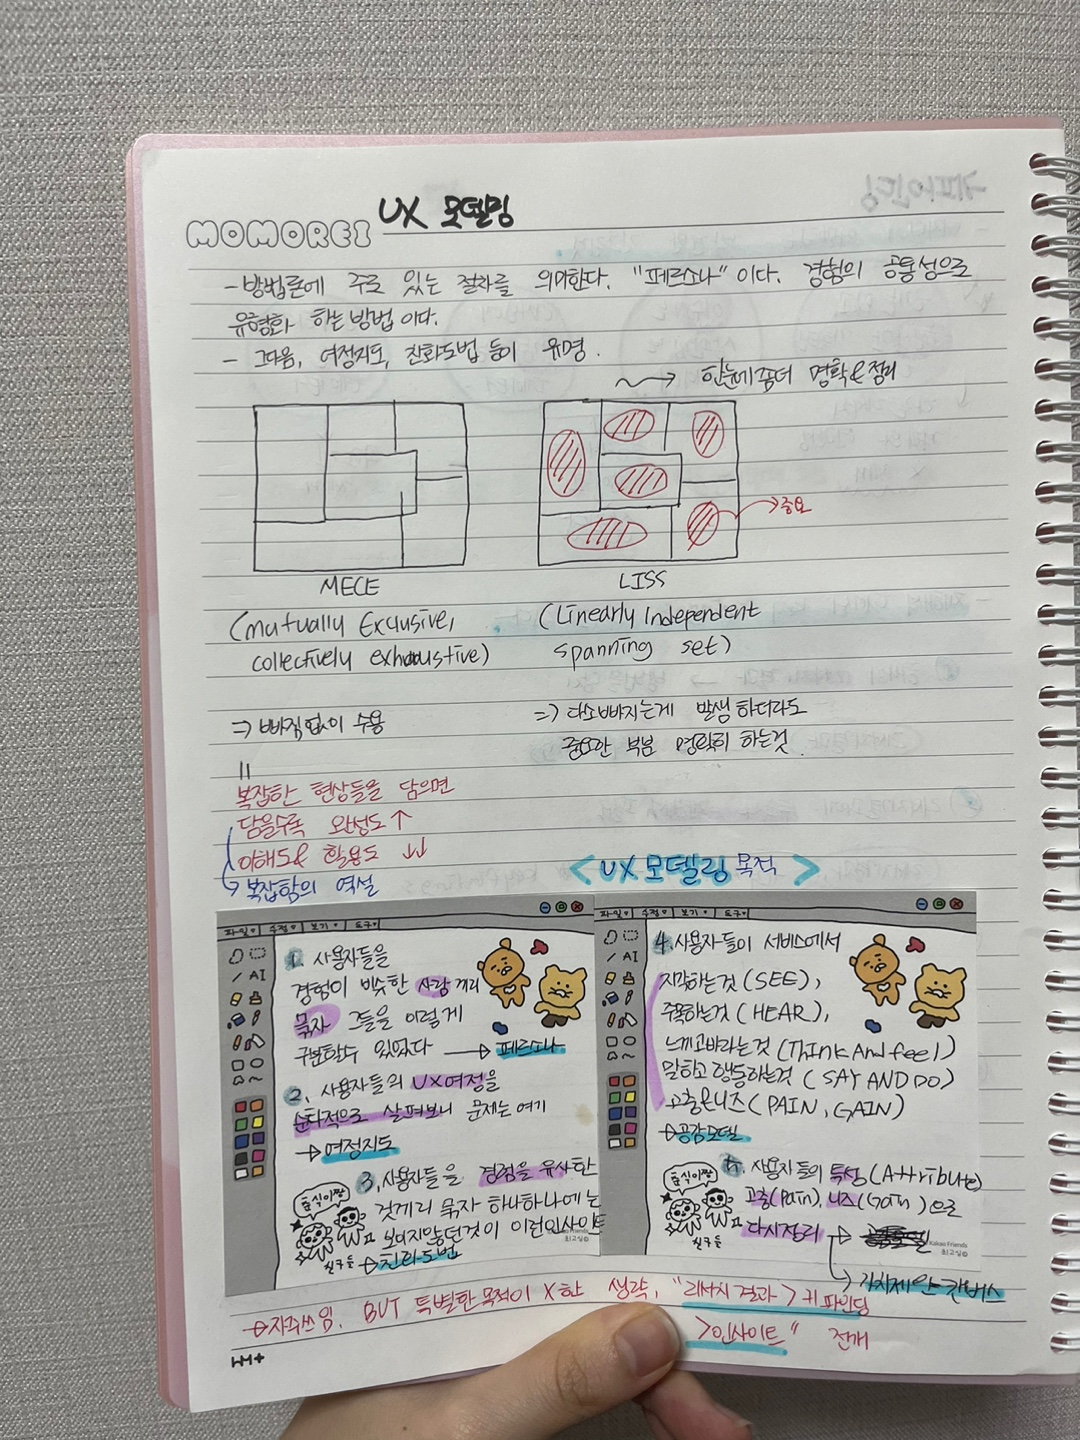 MOMOREI
UX 모델링
- 방법론에 주로 있는 절차를 의미한다. "페르소나" 이다. 경험의 공통성으로
유형화 하는 방법 이다.
- 그다음, 여정지도, 친화도법 등이 유명.
한눈에 좀더 명확 & 정리
중요
MECE
(mutually Exclusive,
collectively exhaustive)
⇒ 빠짐없이 수용
LISS
(Linearly Independent
spanning set)
⇒ 다소 빠지는게 발생 하더라도
중요한 부분 명확히 하는것.
복잡한 현상들을 담으면
담을수록 완성도 ↑
이해도 & 활용도 ↓↓
→ 복잡함의 역설
<UX 모델링 목적>
파일 수정 보기 도구
1. 사용자들을
경험이 비슷한 사람 끼리
묶자 그들을 이렇게
구분할수 있었다 → 페르소나
2. 사용자들의 UX여정을
순차적으로 살펴보니 문제는 여기
→ 여정지도
3. 사용자들을 경험을 유사한
것끼리 묶자 하나하나에는
보이지않던것이 이런인사이트
→ 친화도법
춘식이짱
친구들
파일 수정 보기 도구
4. 사용자들이 서비스에서
지각하는것 (SEE),
주목하는것 (HEAR),
느끼고바라는것 (Think And feel)
말하고 행동하는것 (SAY AND DO)
고충은니즈 (PAIN, GAIN)
→ 공감모델
5. 사용자들의 특성 (Attribute)
고충(Pain), 니즈(Gain)으로
다시정리 →
→ 가치제안 캔버스
춘식이짱
친구들
Kakao Friends
최고심©
→ 자주쓰임, BUT 특별한 목적이 X한 생각, "리서치 결과 > 키 파인딩
> 인사이트" 전개